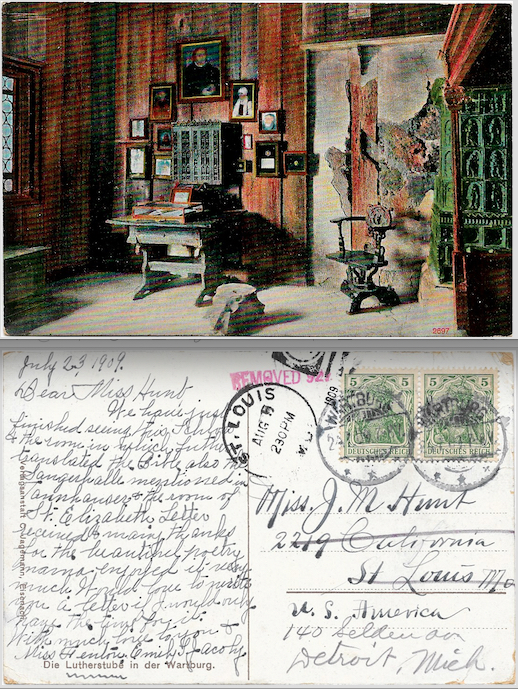 2697
July 23, 1909.
Dear Miss Hunt
We have just
finished seeing this
& the room in which Luther
translated the Bible also the
mentioned in
Tannhauser & the room of
St. Elizabeth. Letter
received. Many thanks
for the beautiful poetry
mama enjoyed it very
much. I would love to write
you a letter if I would only
have the time for it.
With much love to you &
Miss Fenton. Emily S. Jacoby
Die Lutherstube in der Wartburg.
REMOVED
ST. LOUIS
AUG
230PM
1909
WARTBURG
WARTBURG
5 5
DEUTSCHES REICH
5 5
DEUTSCHES REICH
Miss. J. M. Hunt
2219 California
St Louis Mo
U. S. America
140 Selden av
Detroit, Mich.